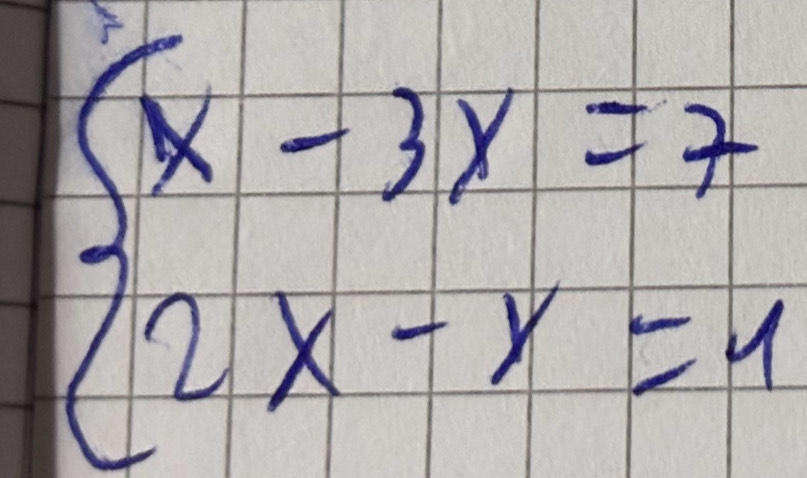 x - 3y = 7
2x - y = 1